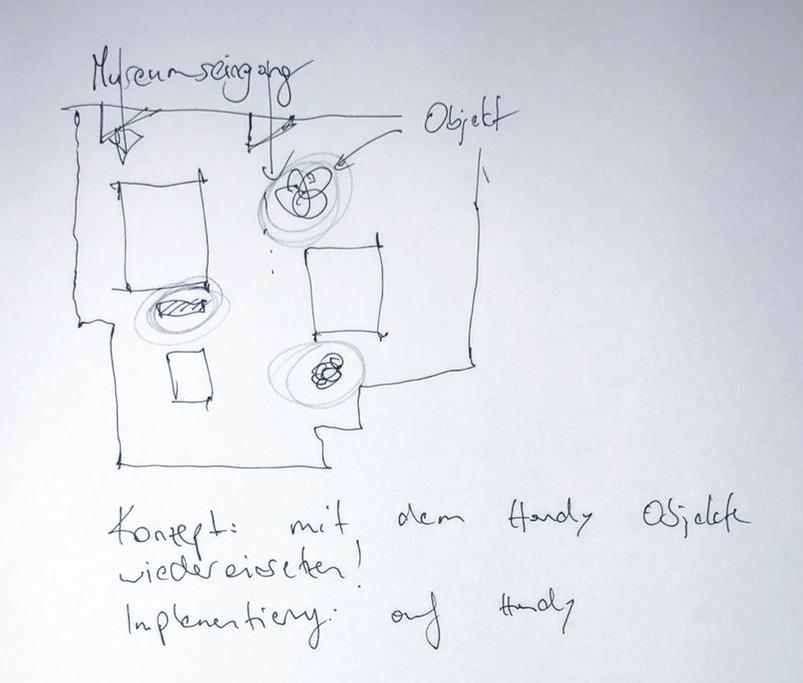 Museumseingang
Objekt
Konzept: mit dem Handy Objekte
wiedereinsetzen!
Implementierung: auf Handy